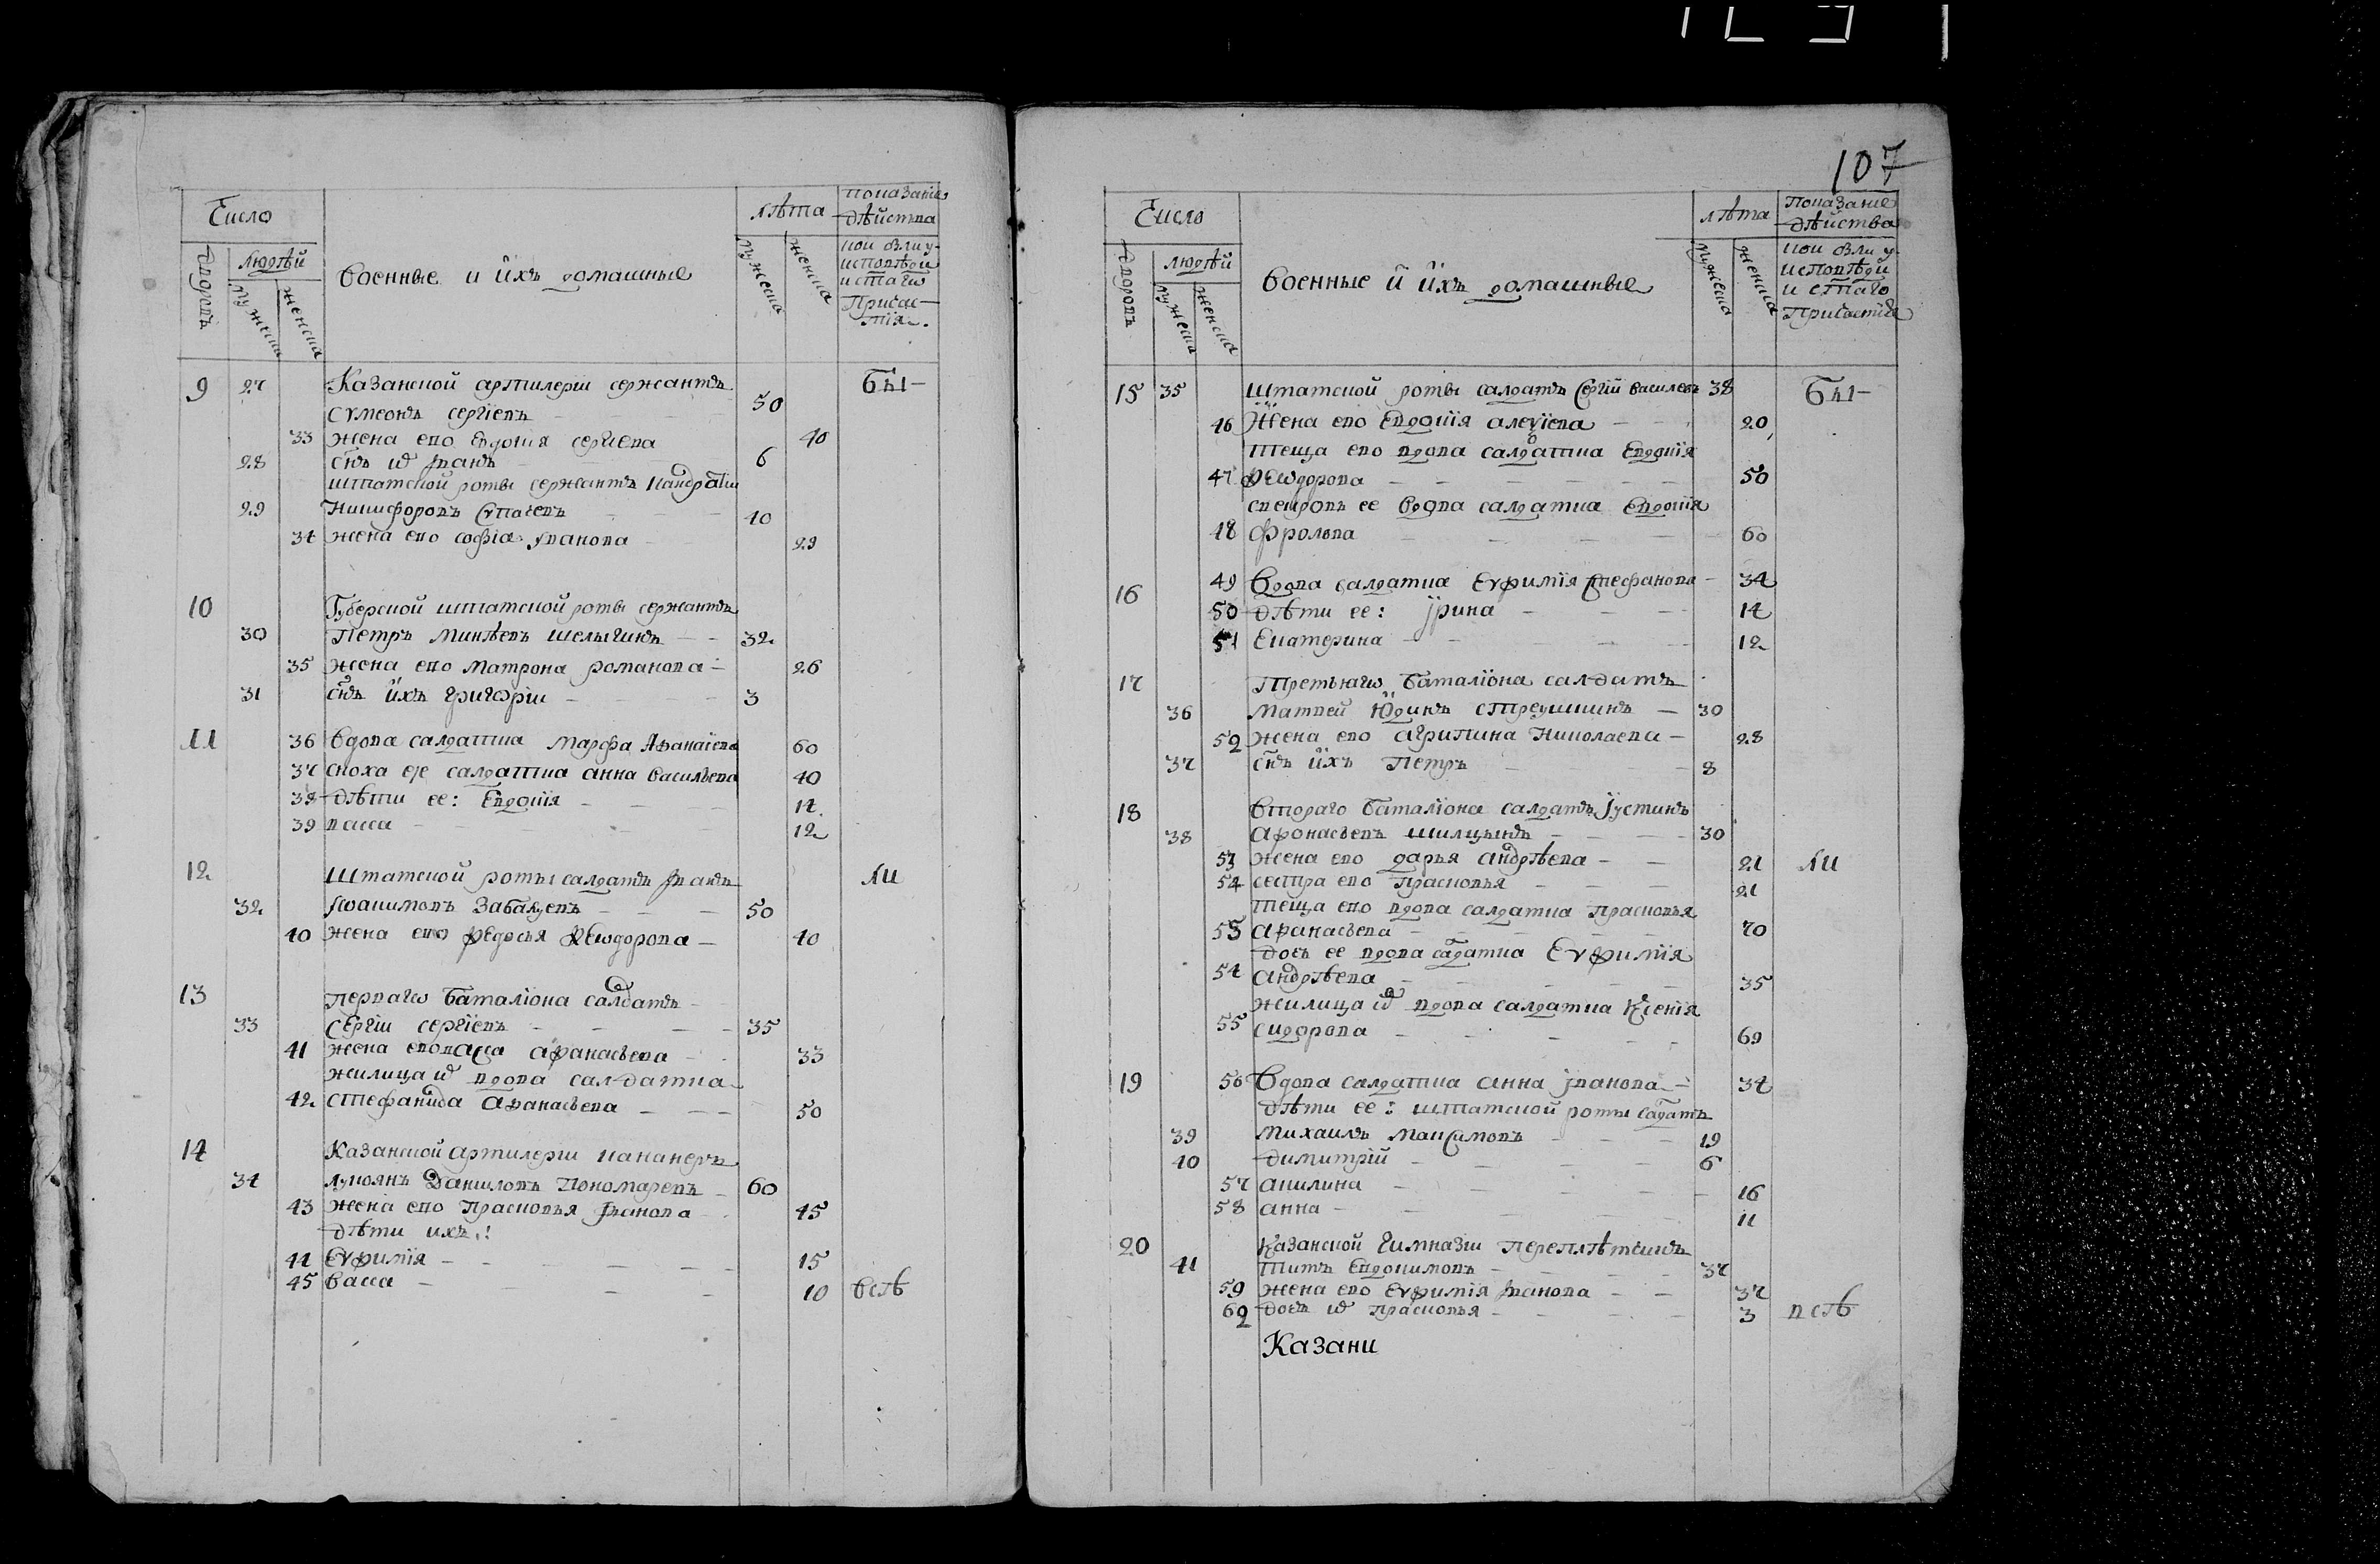 Число
Дворовъ
людѣй
мужеска
женска
Военные и ихъ домашные
лѣта
мужеска
женска
показание
дѣйства
кои были у
исповѣди
и стагѡ
Причас-
тїя.
9 27 Казанской артилерїи сержантъ бы-
Сѵмеонъ сергїевъ 50
33 жена ево Евдокия сергиева 40
28 снъ иⷯ Іванъ 6
штатской роты сержантъ Кандратїи
29 Никифоровъ Сѵпачевъ 40
34 жена ево софїа Іванова 29
10 Губерской штатской роты сержантъ
30 Петръ Минѣевъ шелыгинъ 32
35 жена ево Матрона романова 26
31 снъ ихъ григорїи 3
11 36 Вдова салдатка Марфа Аѳанасїева 60
37 сноха ее салдатка анна васильева 40
38 дѣти ее: Евдокїя 14
39 васса 12
12 Штатской роты салдатъ Іванъ ли
32 Іѡакимовъ Забалуевъ 50
40 жена ево ѳедосья ѳеѡдорова 40
13 перваго баталїона салдатъ
33 Сергїи сергїевъ 35
41 жена ево васса аѳанасьева 33
жилица иⷯ вдова салдатка
42 стефанида аѳанасьева 50
14 Казанской артилерїи кананеръ
34 лукоянъ Даниловъ Пономаревъ 60
43 жена ево Прасковья Іванова 45
дѣти ихъ:
44 Еѵфимїя 15
45 Васса 10 всѣ
107
Число
Дворовъ
людѣй
мужеска
женска
Военные и ихъ домашные
лѣта
мужеска
женска
Показание
дѣйства
кои были у
исповѣди
и стаго
Причастїя
15 35 Штатской роты салдатъ Сергїй васильевъ 38 бы-
46 Жена ево Евдокїя алеѯїева 20
теща ево вдова салдатка Евдокїя
47 Ѳеѡдорова 50
свекровь ее вдова салдатка Евдокїя
48 Фролова 60
16 49 Вдова салдатка Еѵфимїя стефанова 34
50 дѣти ее: Ірина 14
51 Екатерина 12
17 Третьягѡ баталїона салдатъ
36 матвей Юдинъ стрекушкинъ 30
52 жена ево агрипина Николаева 28
37 снъ ихъ Петръ 8
18 Втораго баталїона салдатъ Іустинъ
38 афонасьевъ шилцынъ 30
53 жена ево дарья андрѣева 21 ли
54 сестра ево Прасковья 21
теща ево вдова салдатка Прасковья
53 аѳанасьева 70
дочь ее вдова салдатка Еѵфимїя
54 андрѣева 35
жилица иⷯ вдова салдатка Ксенїя
55 сидорова 69
19 56 Вдова салдатка анна Іванова 34
дѣти ее: штатской роты салдатъ
39 Михаилъ Максимовъ 19
40 димитрїй 6
57 акилина 16
58 анна 11
20 Казанской гимназїи переплѣтчикъ
41 Титъ Евдокимовъ 37
59 жена ево Еѵфимїя Іванова 37
62 дочь иⷯ Прасковья 3 всѣ
Казани